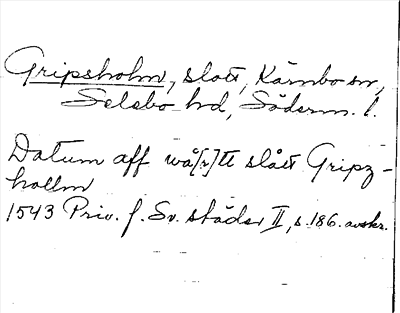 Gripsholm, slott, Kärnbo sn,
Selebo hd, Söderm. l.
Datum aff wå[r]tt slått Gripz-
hollm
1543 Priv. f. Sv. städer II, s. 186. avskr.